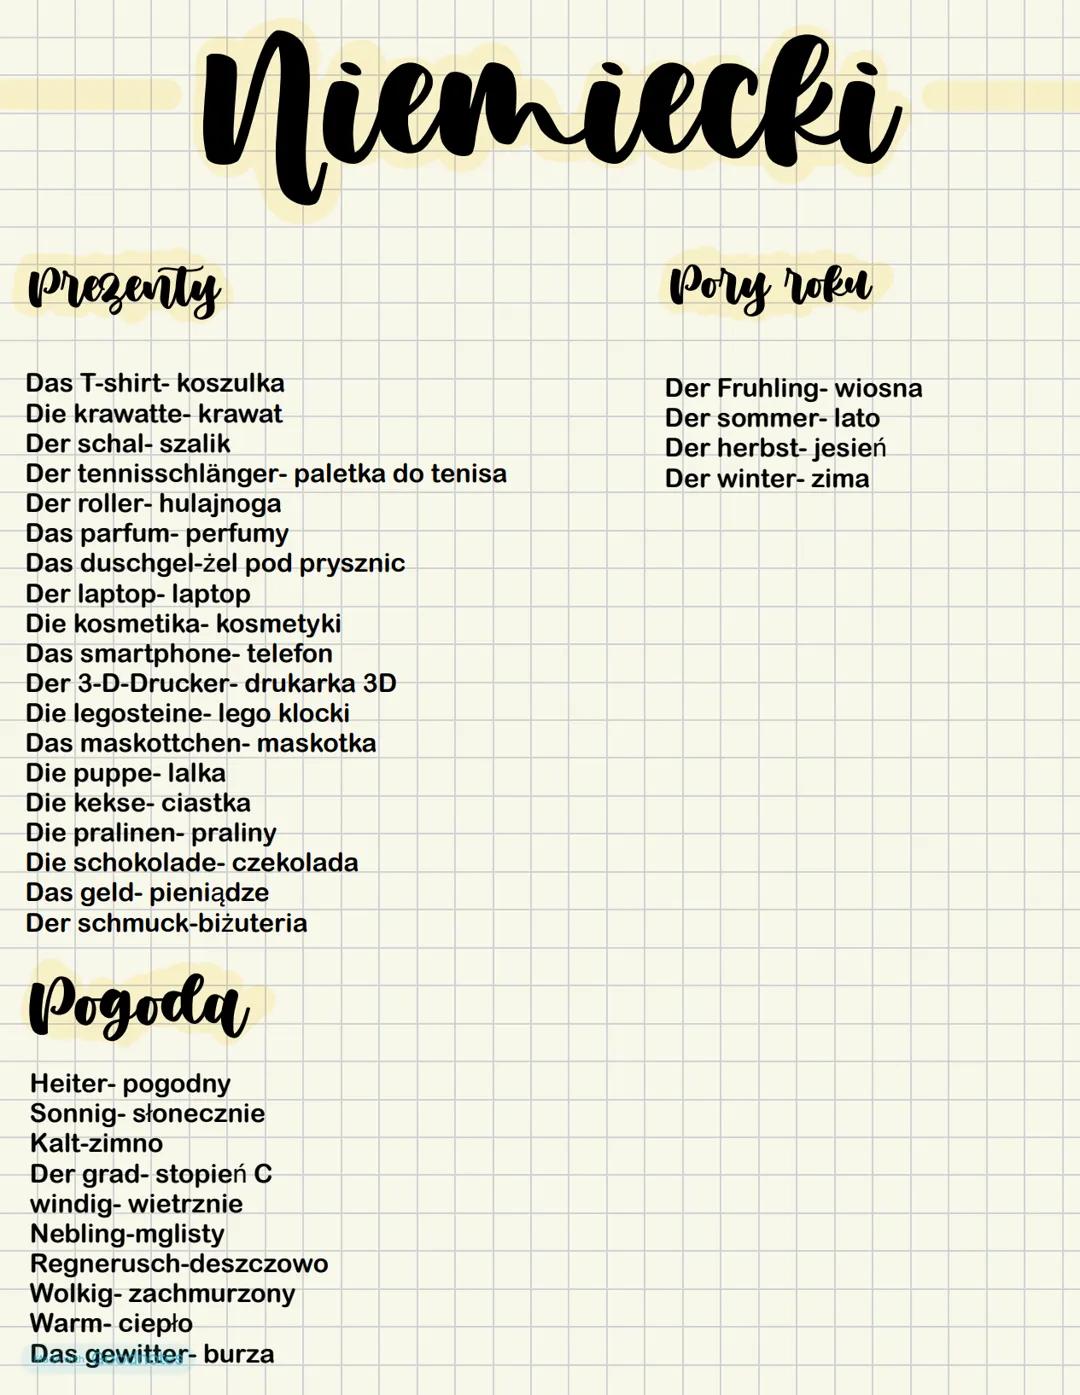 Niemiecki
Prezenty
Das T-shirt- koszulka
Die krawatte- krawat
Der schal- szalik
Der tennisschlänger- paletka do tenisa
Der roller- hulajnoga
Das parfum- perfumy
Das duschgel-żel pod prysznic
Der laptop- laptop
Die kosmetika- kosmetyki
Das smartphone- telefon
Der 3-D-Drucker- drukarka 3D
Die legosteine- lego klocki
Das maskottchen- maskotka
Die puppe- lalka
Die kekse- ciastka
Die pralinen- praliny
Die schokolade- czekolada
Das geld- pieniądze
Der schmuck-biżuteria
Pory roku
Der Fruhling- wiosna
Der sommer- lato
Der herbst- jesień
Der winter- zima
Pogoda
Heiter- pogodny
Sonnig- słonecznie
Kalt-zimno
Der grad- stopień C
windig- wietrznie
Nebling-mglisty
Regnerusch-deszczowo
Wolkig- zachmurzony
Warm- ciepło
Das gewitter- burza
Made with Goodnotes